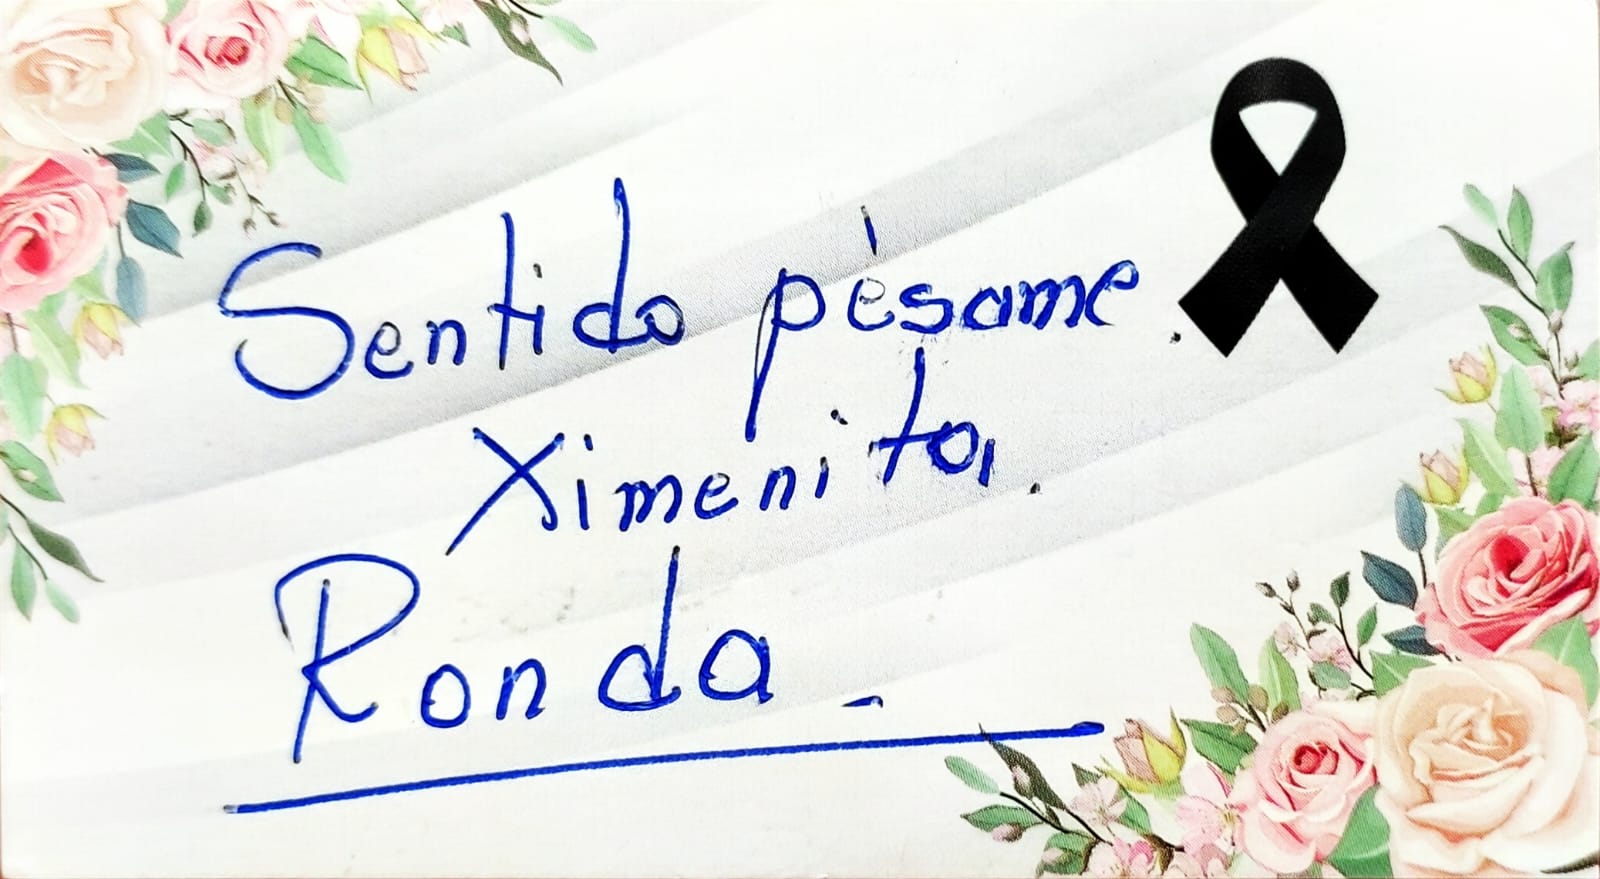 Sentido pésame.
Ximenita.
Ronda.-